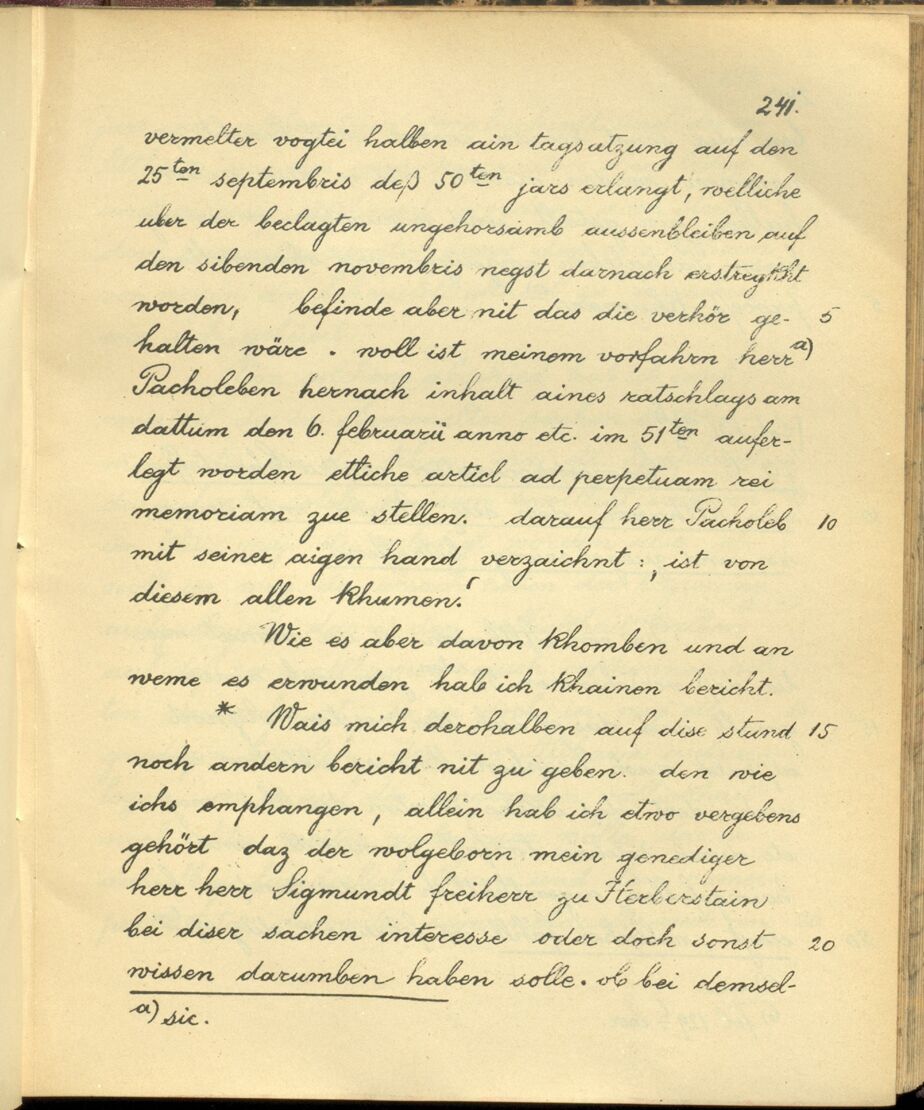 241.
vermelter vogtei halben ain tagsatzung auf den
25ten septembris deß 50ten jars erlangt, welliche
uber der beclagten ungehorsamb aussenbleiben auf
den sibenden novembris negst darnach erstreykht
worden, befinde aber nit das die verhör ge- 5
halten wäre. woll ist meinem vorfahrn herr a)
Pacholeben hernach inhalt aines ratschlags am
dattum den 6. februarii anno etc. im 51ten aufer-
legt worden etliche articl ad perpetuam rei
memoriam zue stellen. darauf herr Pacholeb 10
mit seiner aigen hand verzaichnt: ‚ist von
diesem allen khumen.‘
Wie es aber davon khomben und an
weme es erwunden hab ich khainen bericht.
* Wais mich derohalben auf dise stund 15
noch andern bericht nit zu geben. den wie
ichs emphangen, allein hab ich etwo vergebens
gehört daz der wolgeborn mein genediger
herr herr Sigmundt freiherr zu Herberstain
bei diser sachen interesse oder doch sonst 20
wissen darumben haben solle. ob bei demsel-
a) sic.